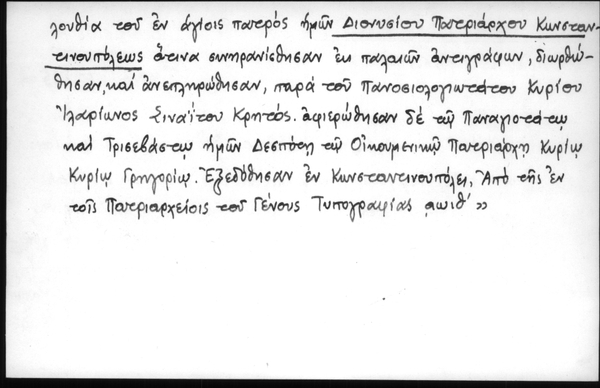 λουθία τοῦ ἐν ἁγίοις πατρός ἡμῶν Διονυσίου Πατριάρχου Κωνσταν-
τινουπόλεως ἅτινα συνηρανίσθησαν ἐκ παλαιῶν ἀντιγράφων, διωρθώ-
θησαν, καί ἀνεπληρώθησαν, παρά τοῦ Πανοσιολογιωτάτου Κυρίου
Ἱλαρίωνος Σιναΐτου Κρητός. ἀφιερώθησαν δέ τῷ Παναγιωτάτῳ
καί Τρισεβάστῳ ἡμῶν Δεσπότῃ τῷ Οἰκουμενικῷ Πατριάρχῃ Κυρίῳ
Κυρίῳ Γρηγορίῳ. Ἐξεδόθησαν ἐν Κωνσταντινουπόλει, Ἀπό τῆς ἐν
τοῖς Πατριαρχείοις τοῦ Γένους Τυπογραφίας ͵αωιθ' »